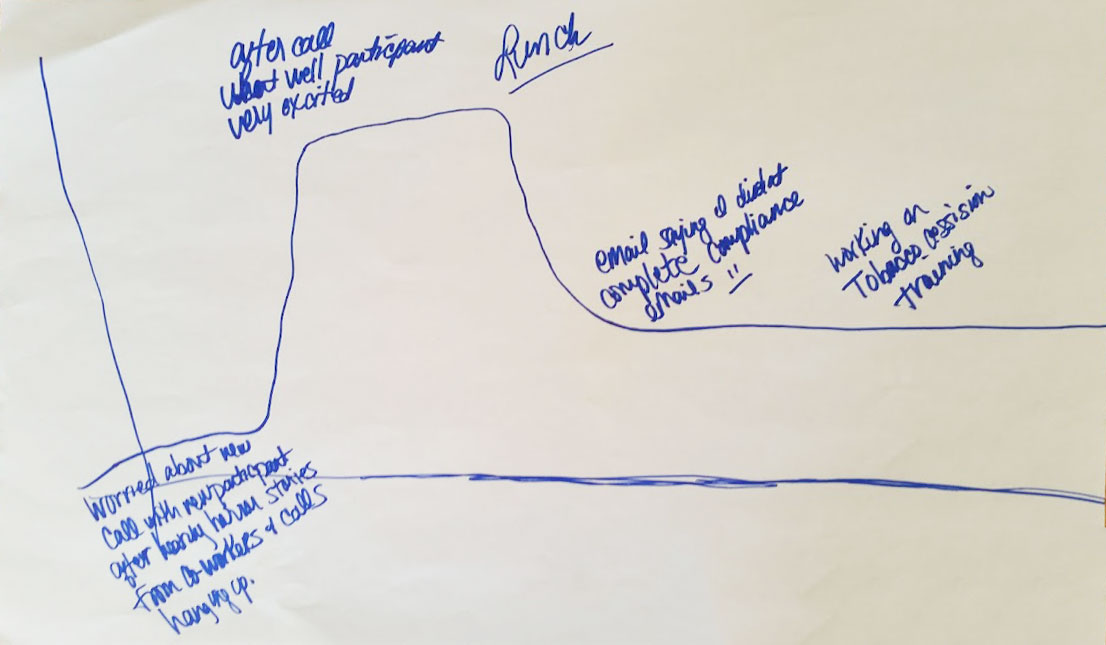 after call
went well participant
very excited
Lunch
email saying I didnt
complete compliance
emails !!
working on
Tobacco cession
training
Worried about new
call with new participant
after hearing horror stories
from co-workers & calls
hanging up.